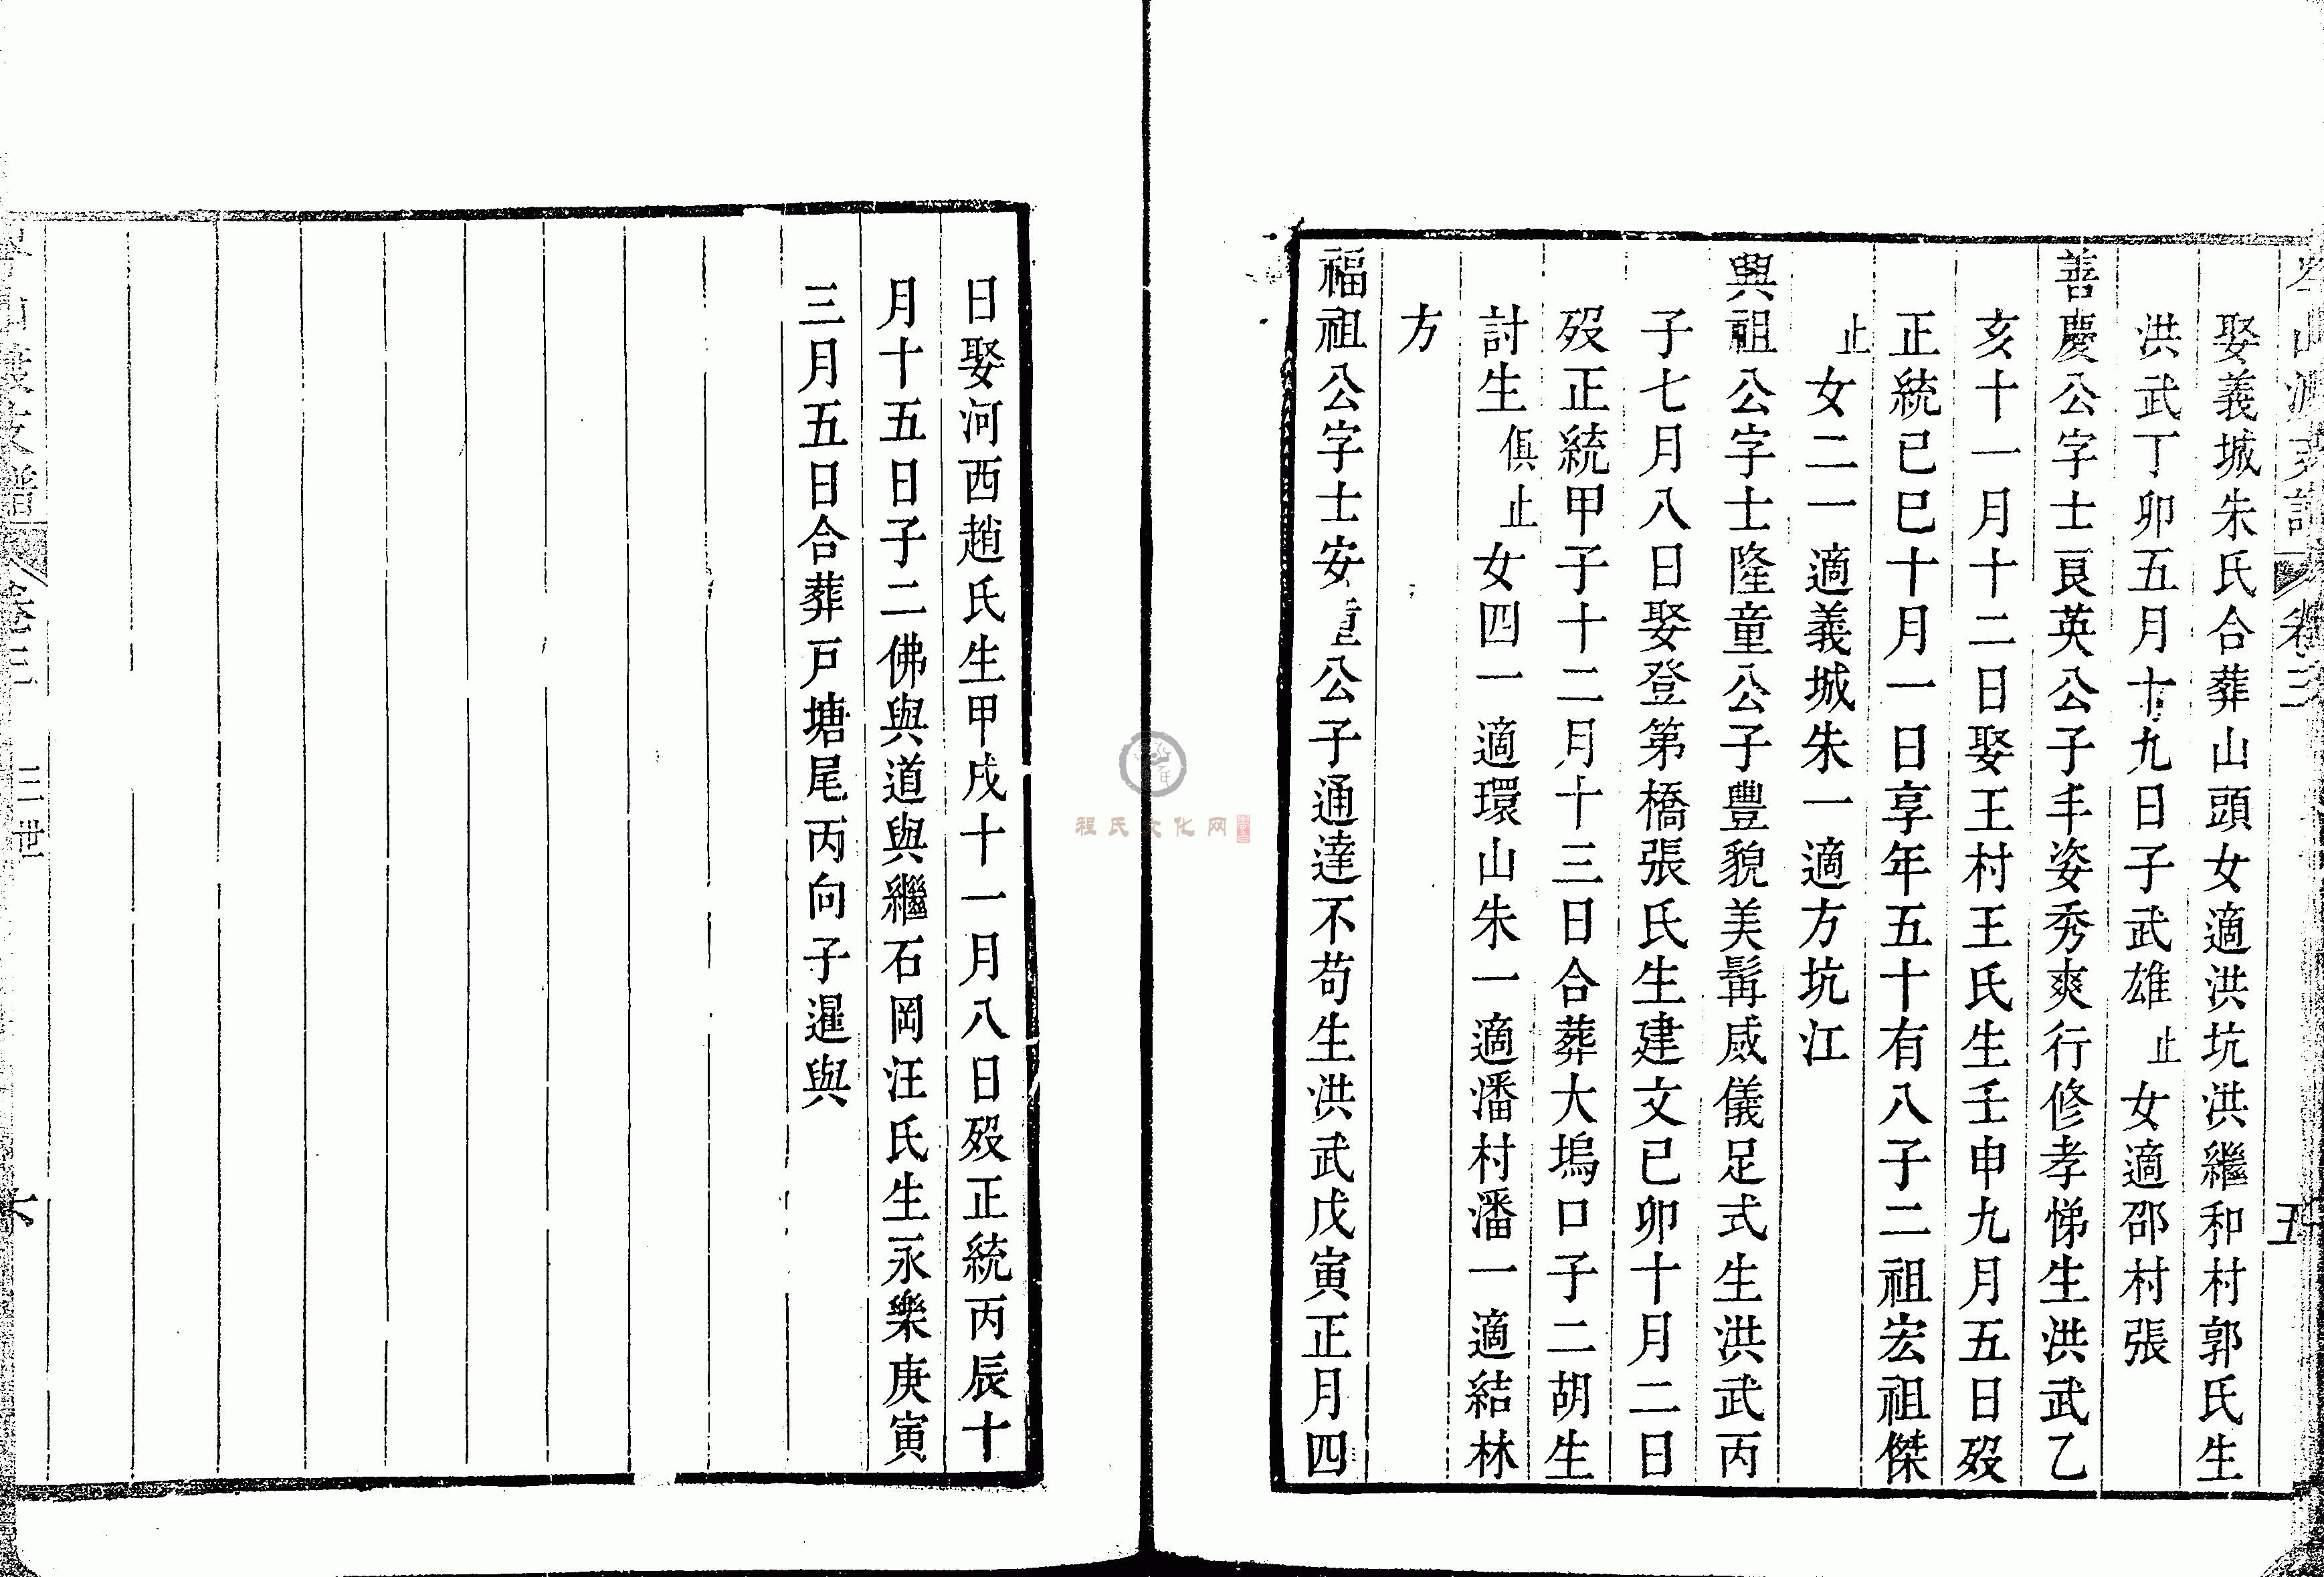 山 支譜 卷三 五
娶義城朱氏合葬山頭女適洪坑洪繼和村郭氏生
洪武丁卯五月十九日子武雄止女適邵村張
善慶公字士良英公子丰姿秀爽行修孝悌生洪武乙
亥十一月十二日娶王村王氏生壬申九月五日歿
正統已巳十月一日享年五十有八子二祖宏祖傑
止女二一適義城朱一適方坑江
興祖公字士隆童公子豐貌美髯威儀足式生洪武丙
子七月八日娶登第橋張氏生建文已卯十月二日
歿正統甲子十二月十三日合葬大塢口子二胡生
討生俱止女四一適環山朱一適潘村潘一適結林
方
福祖公字士安童公子通達不苟生洪武戊寅正月四
日娶河西趙氏生甲戌十一月八日歿正統丙辰十
月十五日子二佛與道與繼石岡汪氏生永樂庚寅
三月五日合葬戸塘尾丙向子暹與
山 支譜 卷三 三世 六
程氏文化网